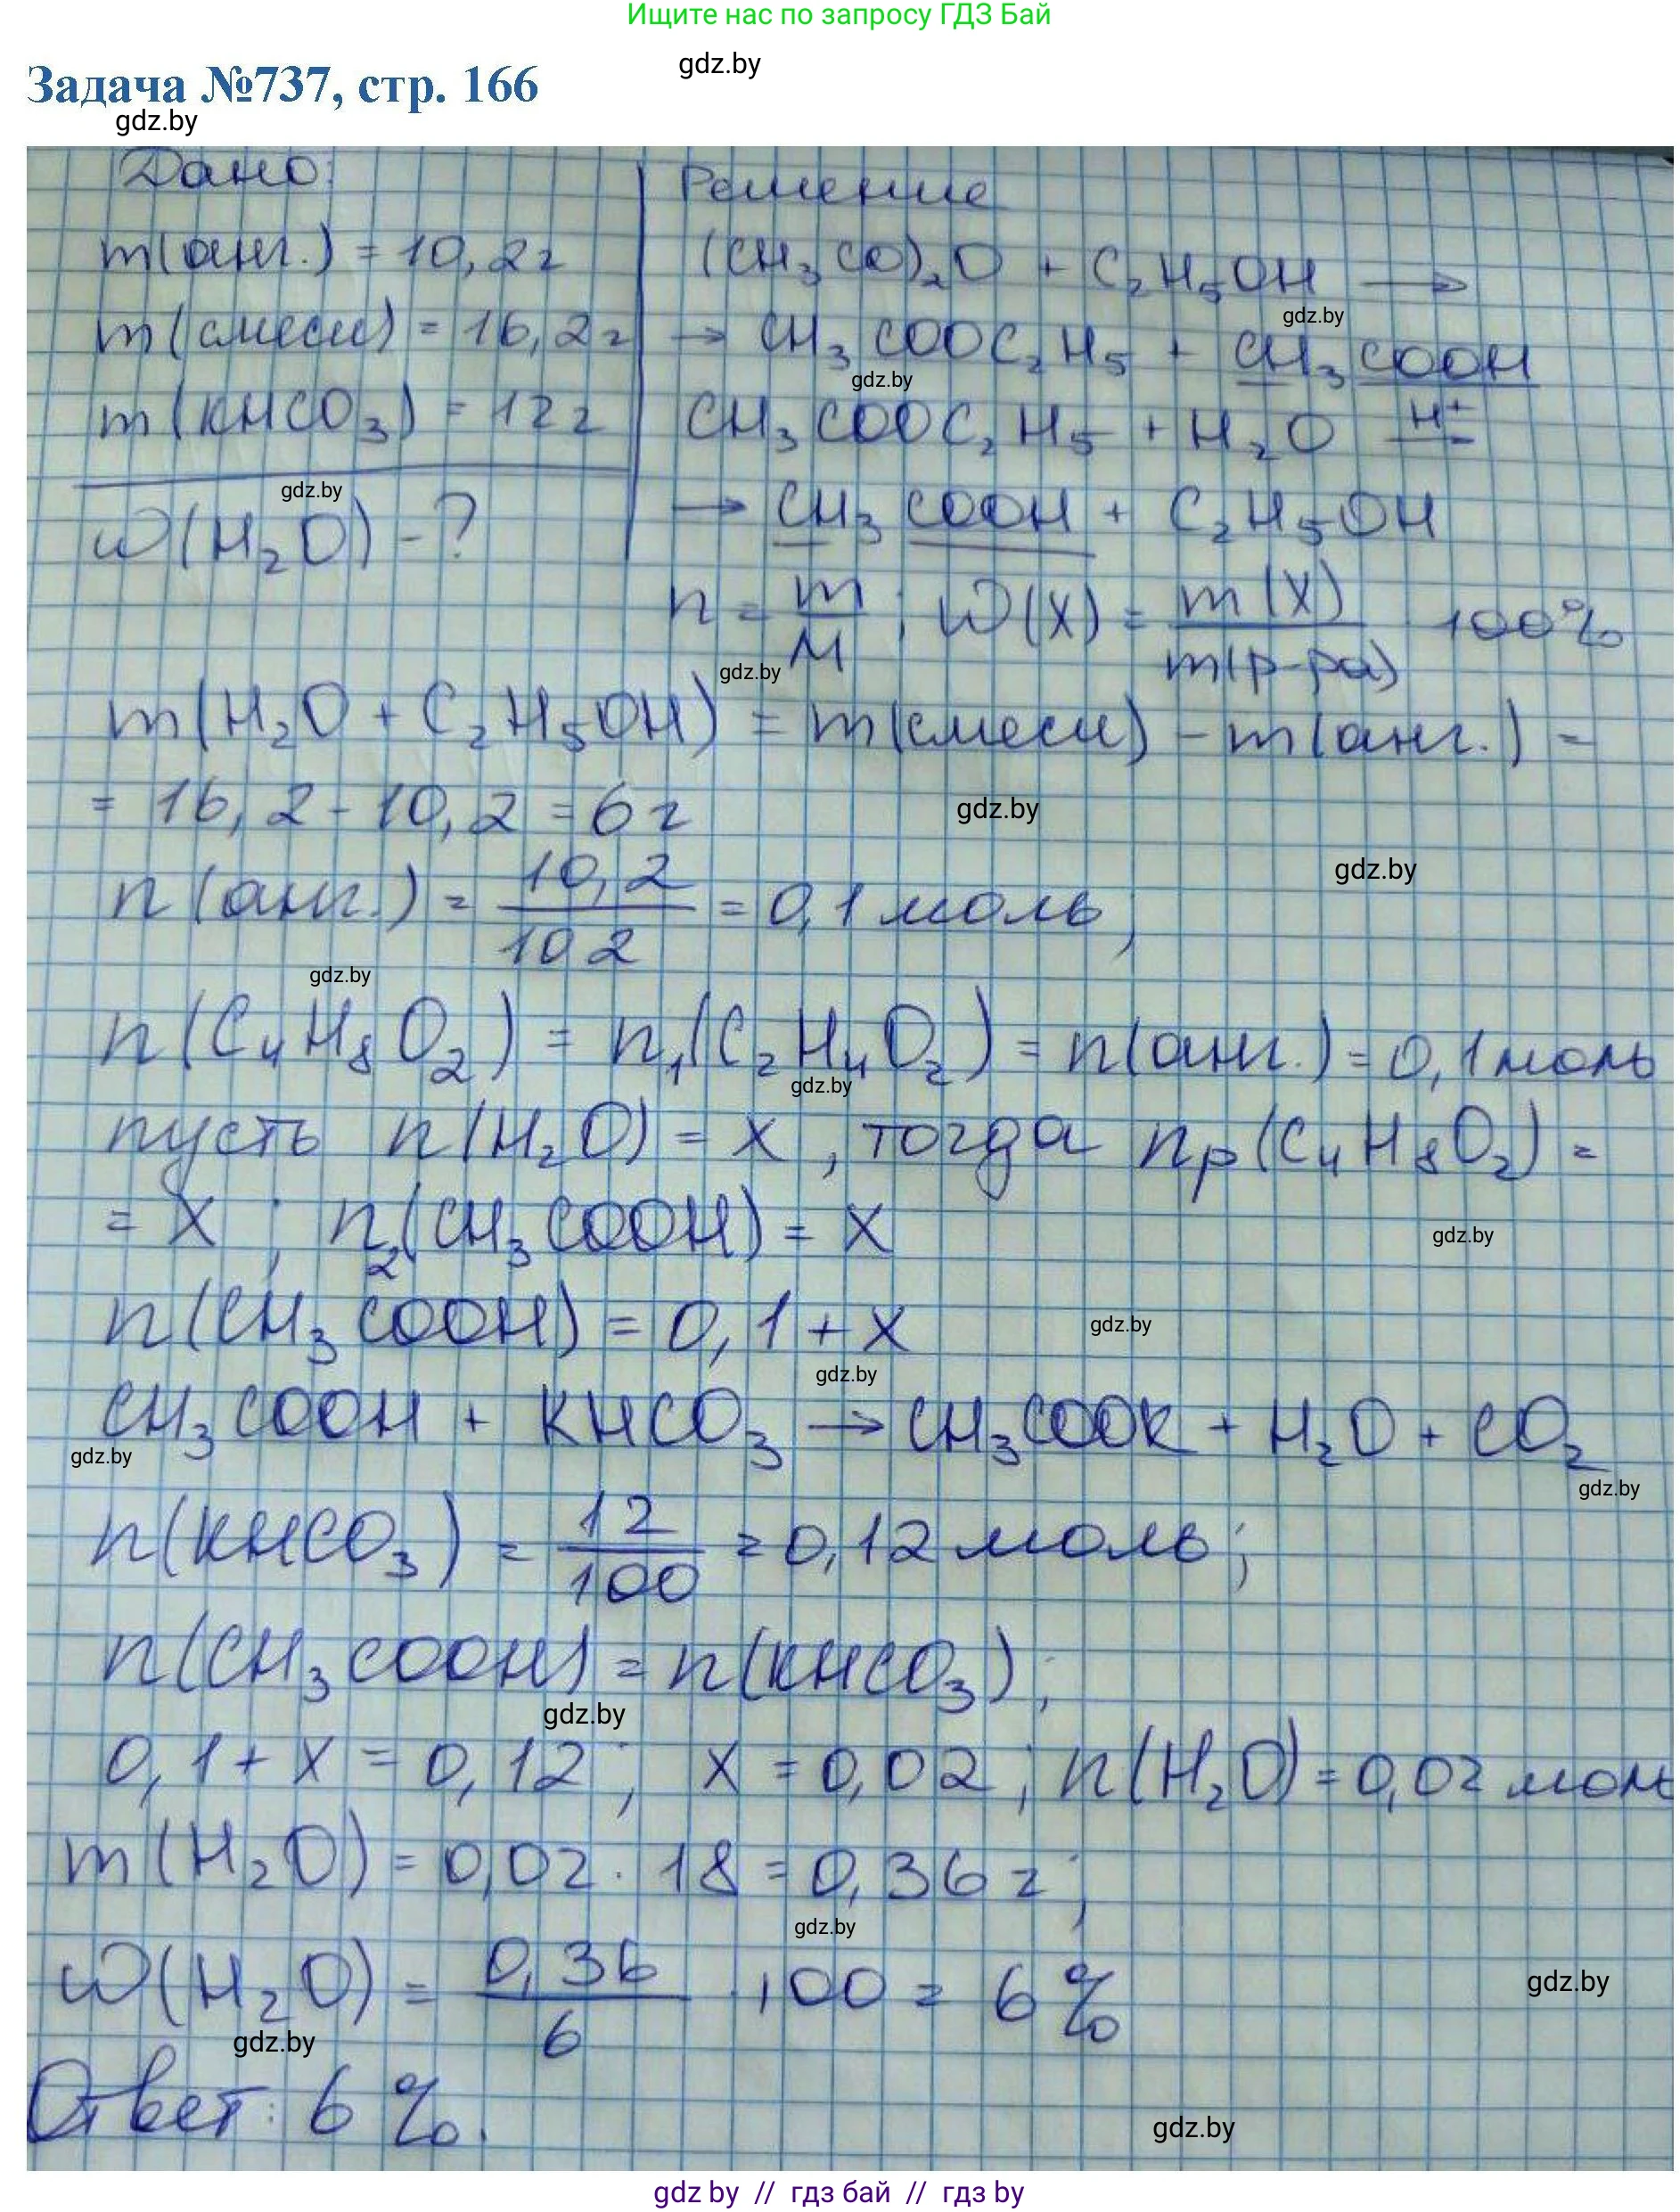 Ищите нас по запросу ГДЗ Бай
gdz.by
Задача №737, стр. 166
gdz.by
Дано:
m(анг.) = 10,2г
m(смеси) = 16,2г
m(KHCO₃) = 12г
gdz.by
w(H₂O) - ?
Решение
(CH₃CO)₂O + C₂H₅OH →
gdz.by
→ CH₃COOC₂H₅ + CH₃COOH
gdz.by
CH₃COOC₂H₅ + H₂O H⁺
→ CH₃COOH + C₂H₅OH
n = m/M ; w(X) = m(X)/m(р-ра) · 100%
gdz.by
m(H₂O + C₂H₅OH) = m(смеси) - m(анг.) =
= 16,2 - 10,2 = 6г
gdz.by
gdz.by
n(анг.) = 10,2/102 = 0,1 моль,
gdz.by
n(C₄H₈O₂) = n₁(C₂H₄O₂) = n(анг.) = 0,1 моль
gdz.by
пусть n(H₂O) = x, тогда nр(C₄H₈O₂) =
= x ; n₂(CH₃COOH) = x
gdz.by
n(CH₃COOH) = 0,1 + x
gdz.by
gdz.by
CH₃COOH + KHCO₃ → CH₃COOK + H₂O + CO₂
gdz.by
gdz.by
n(KHCO₃) = 12/100 = 0,12 моль;
n(CH₃COOH) = n(KHCO₃);
gdz.by
0,1 + x = 0,12 ; x = 0,02 ; n(H₂O) = 0,02 моль
m(H₂O) = 0,02 · 18 = 0,36г;
gdz.by
w(H₂O) = 0,36/6 · 100 = 6%
gdz.by
gdz.by
Ответ: 6%.
gdz.by
gdz by // гдз бай // гдз by